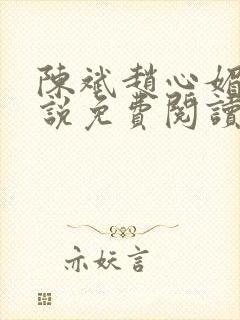 陳斌趙心媚
說免費閱讀
亦妖言